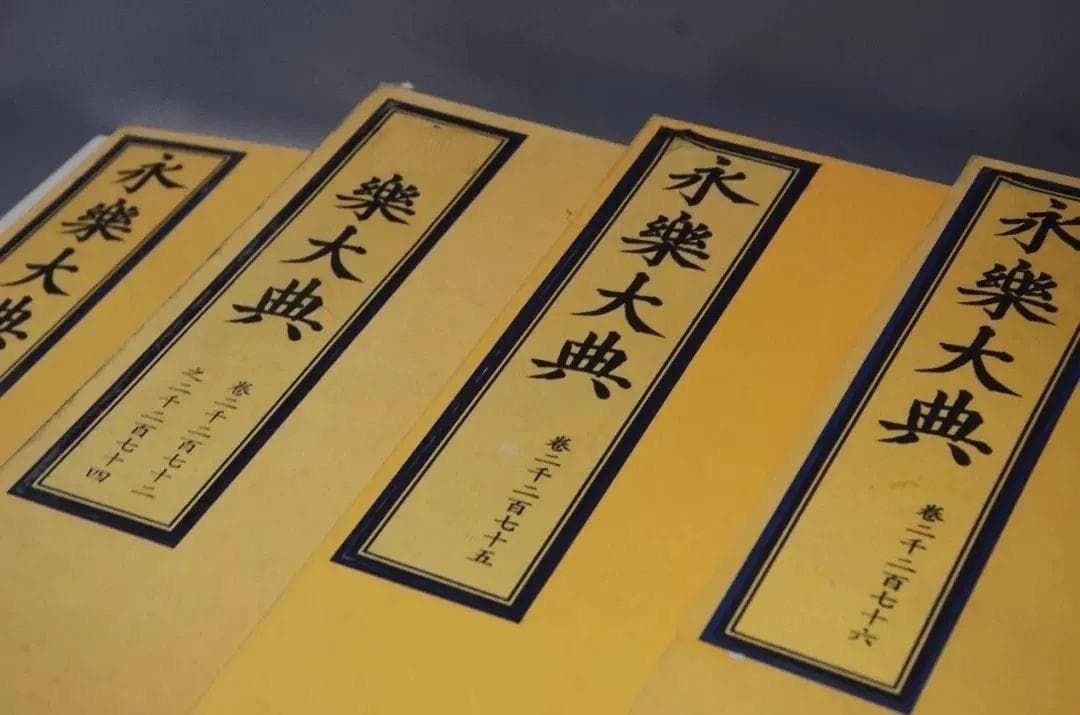 永樂大典
樂大典
卷二千二百七十二
之二千二百七十四
永樂大典
卷二千二百七十五
永樂大典
卷二千二百七十六